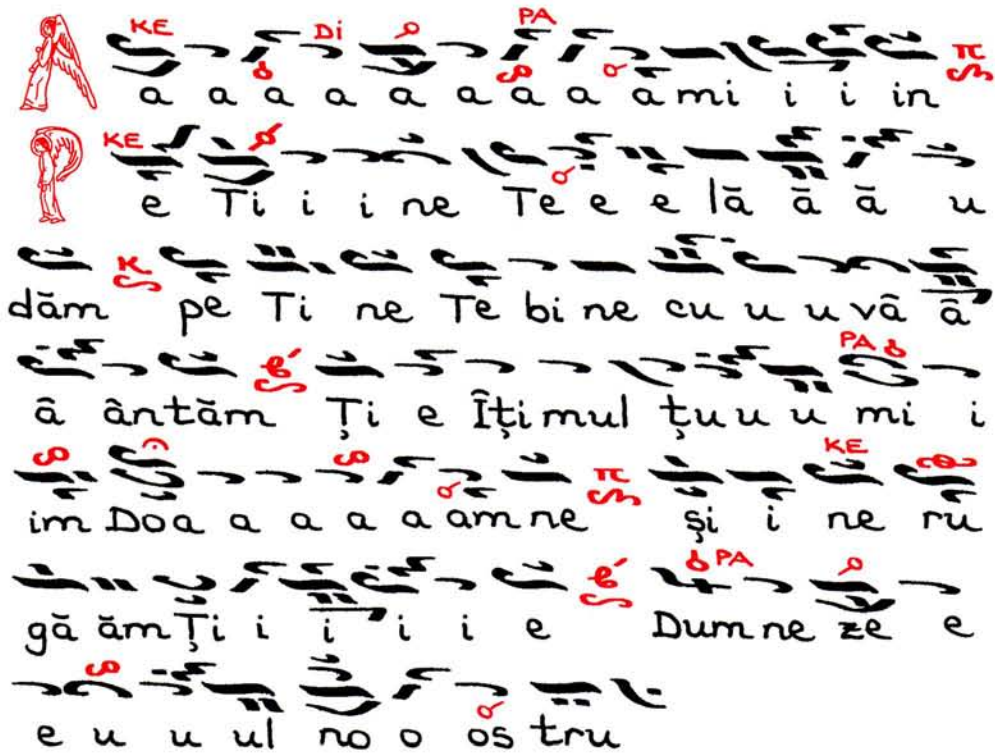 KE Di PA
A a a a a a a a a a mi i i in
KE
P e Ti i i ne Te e e lă ă ă u
dăm pe Ti ne Te bi ne cu u u vâ â
PA
â ântăm Ţi e Îţi mul ţu u u mi i
KE
im Do a a a a a am ne şi i ne ru
gă ăm Ţi i i i i e Dum ne ze e
PA
e u u ul no o os tru